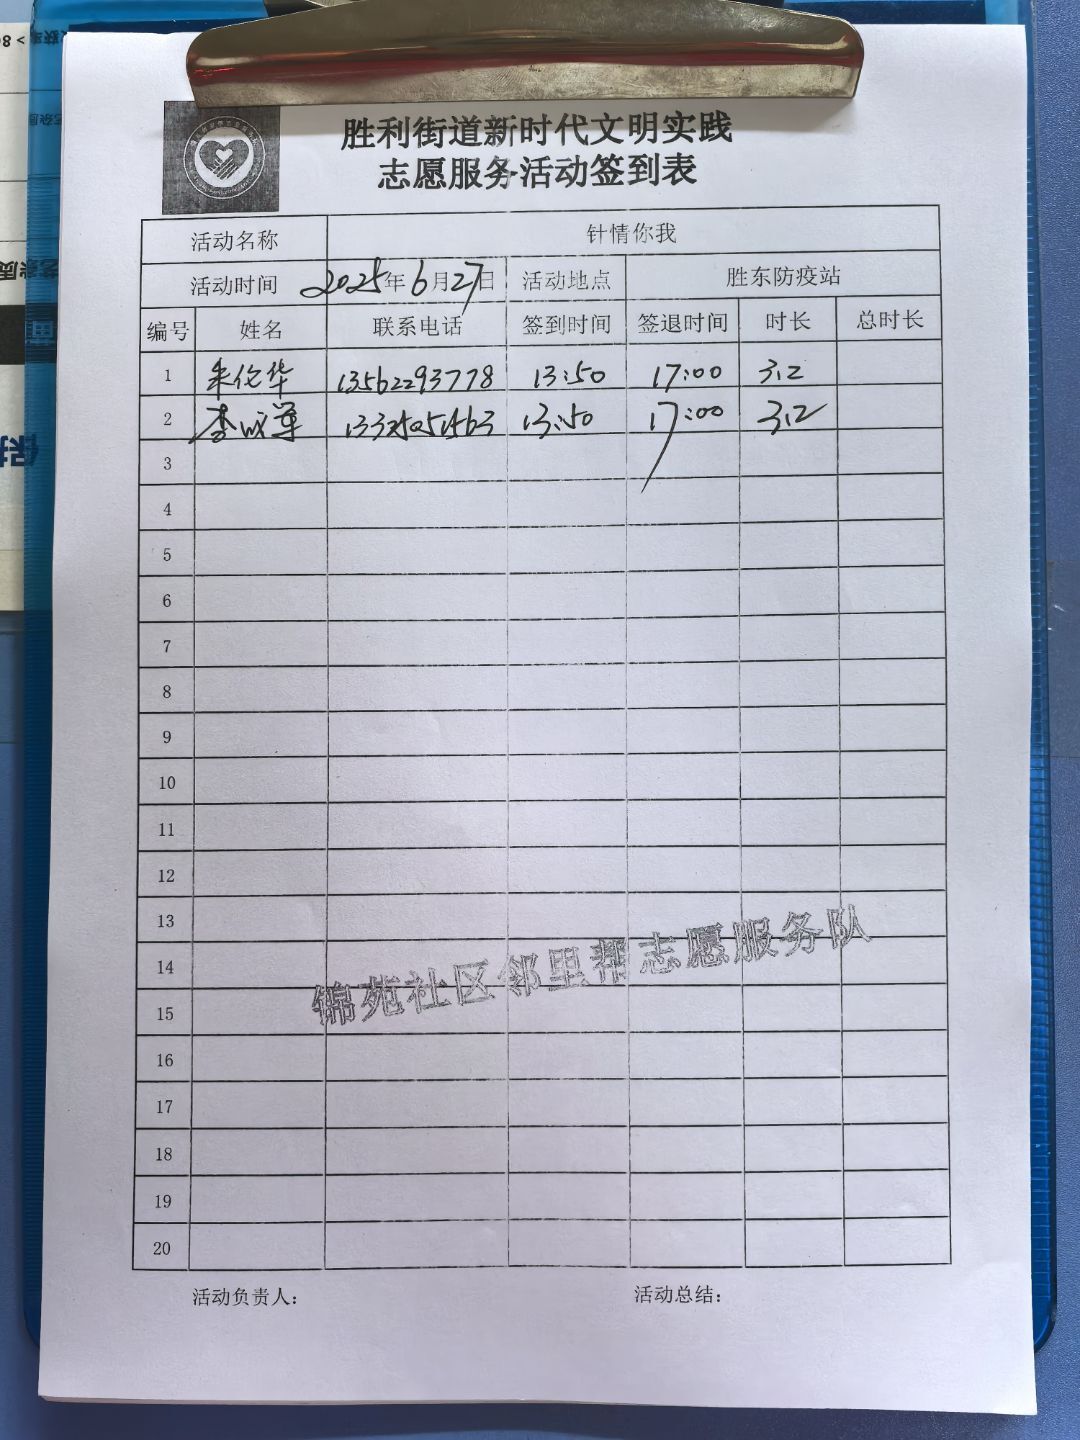 胜利街道新时代文明实践
志愿服务活动签到表
活动名称 针情你我
活动时间 2025年6月27日 活动地点 胜东防疫站
编号 姓名 联系电话 签到时间 签退时间 时长 总时长
1 朱伦华 13562293778 13:50 17:00 3.2
2 李 13:50 17:00 3.2
3
4
5
6
7
8
9
10
11
12
13
14
15
16
17
18
19
20
锦苑社区邻里帮志愿服务队
活动负责人： 活动总结：